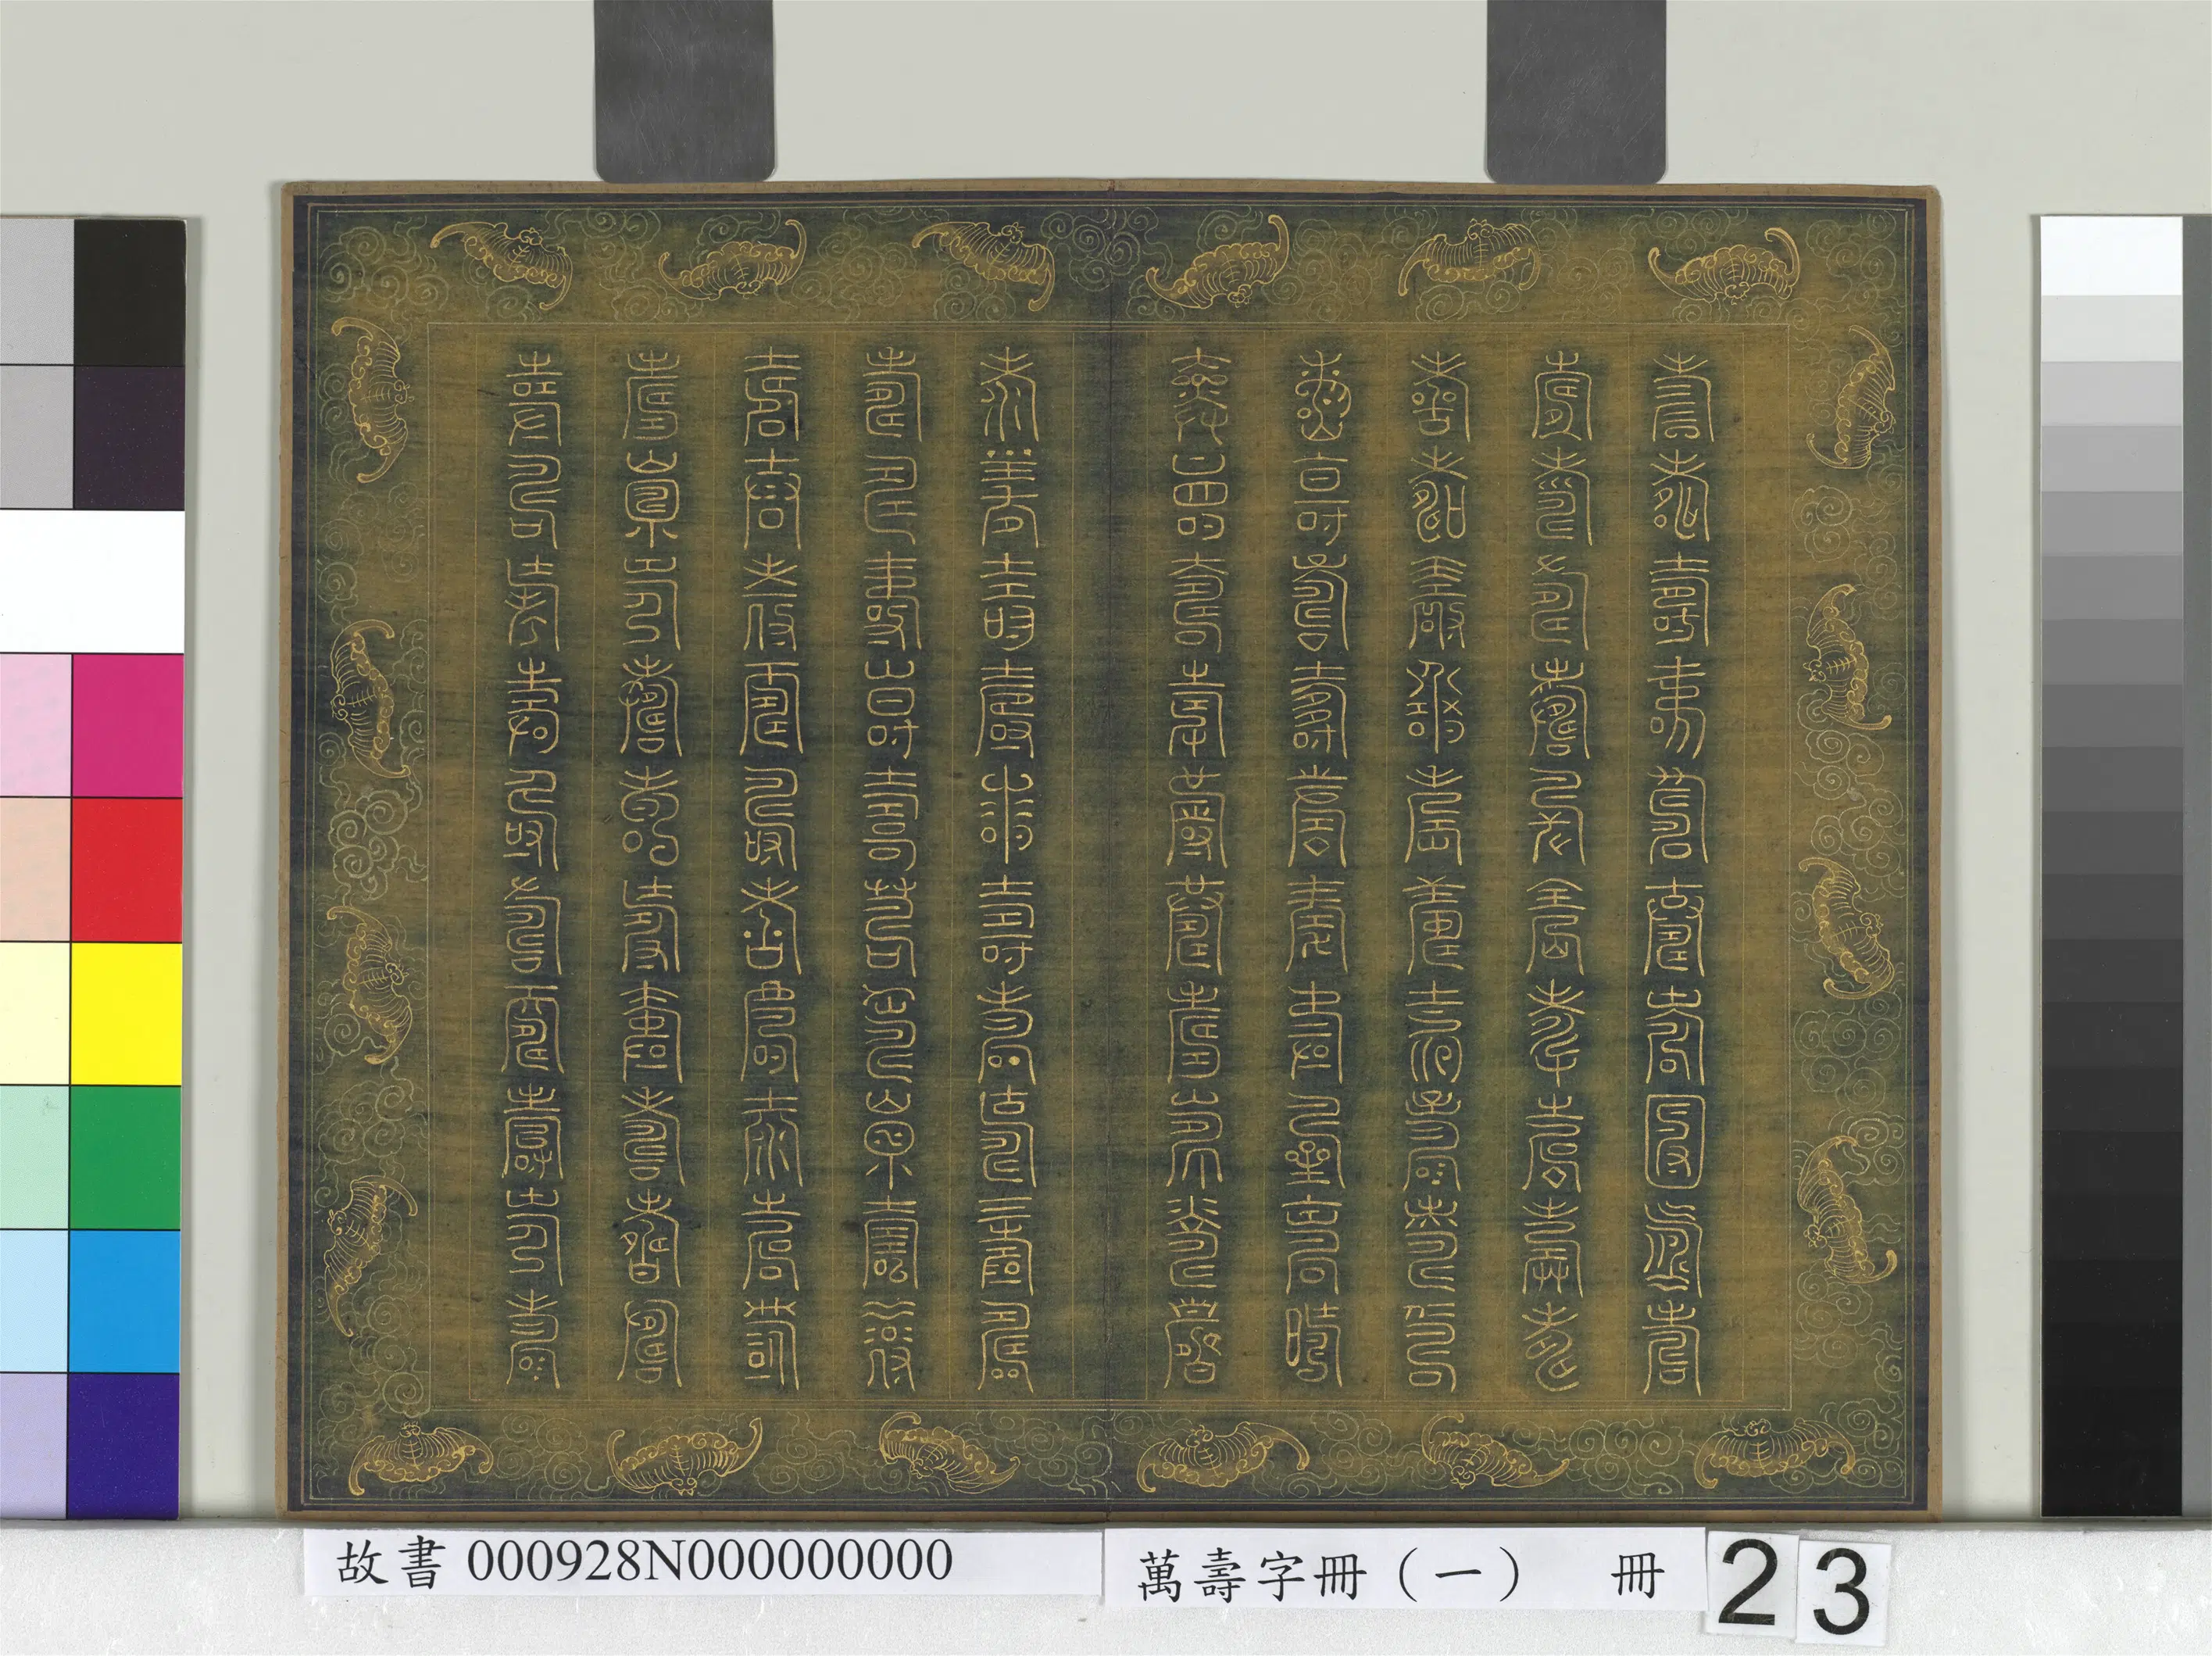 壽壽壽壽壽壽壽壽壽壽
壽壽壽壽壽壽壽壽壽壽
壽壽壽壽壽壽壽壽壽壽
壽壽壽壽壽壽壽壽壽壽
壽壽壽壽壽壽壽壽壽壽
壽壽壽壽壽壽壽壽壽壽
壽壽壽壽壽壽壽壽壽壽
壽壽壽壽壽壽壽壽壽壽
壽壽壽壽壽壽壽壽壽壽
壽壽壽壽壽壽壽壽壽壽
故書 000928N000000000
萬壽字冊（一） 冊 23